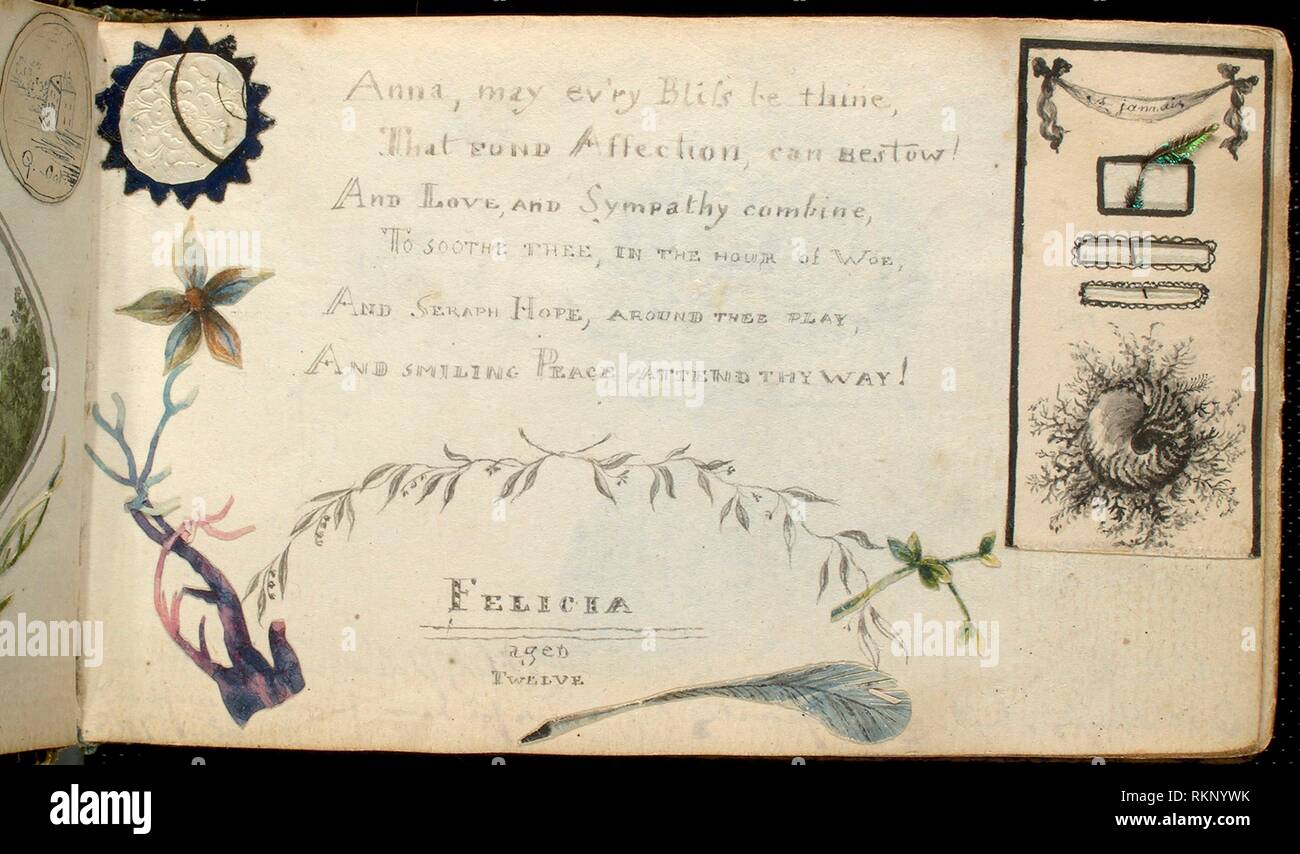 Anna, may ev'ry Bliſs be thine,
That FOND Affection, can BESTOW!
AND LOVE, AND Sympathy combine,
TO SOOTHE THEE, IN THE HOUR of WOE,
AND SERAPH HOPE, AROUND THEE PLAY,
AND SMILING PEACE ATTEND THY WAY!
FELICIA
ageD
TWELVE
alamy
Image ID: RKNYWK
www.alamy.com